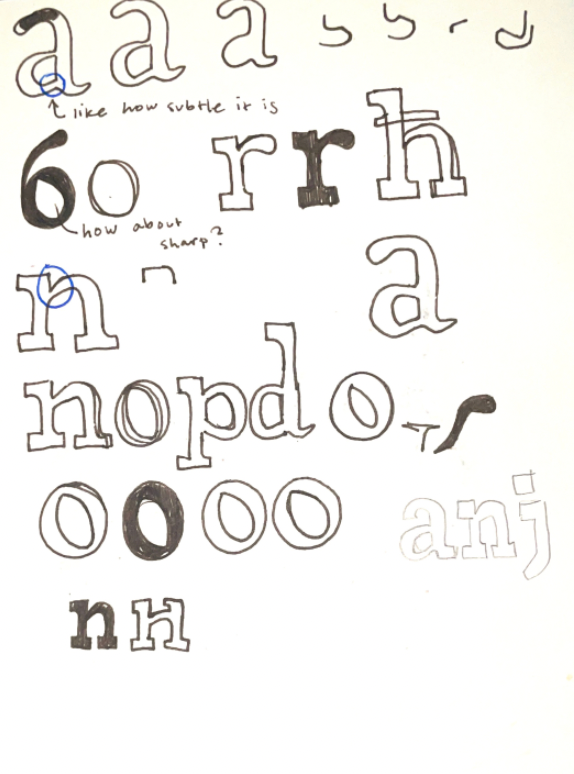 a a a
like how subtle it is
6o r r h
how about
sharp?
n a
nopdo
0000 anj
n n